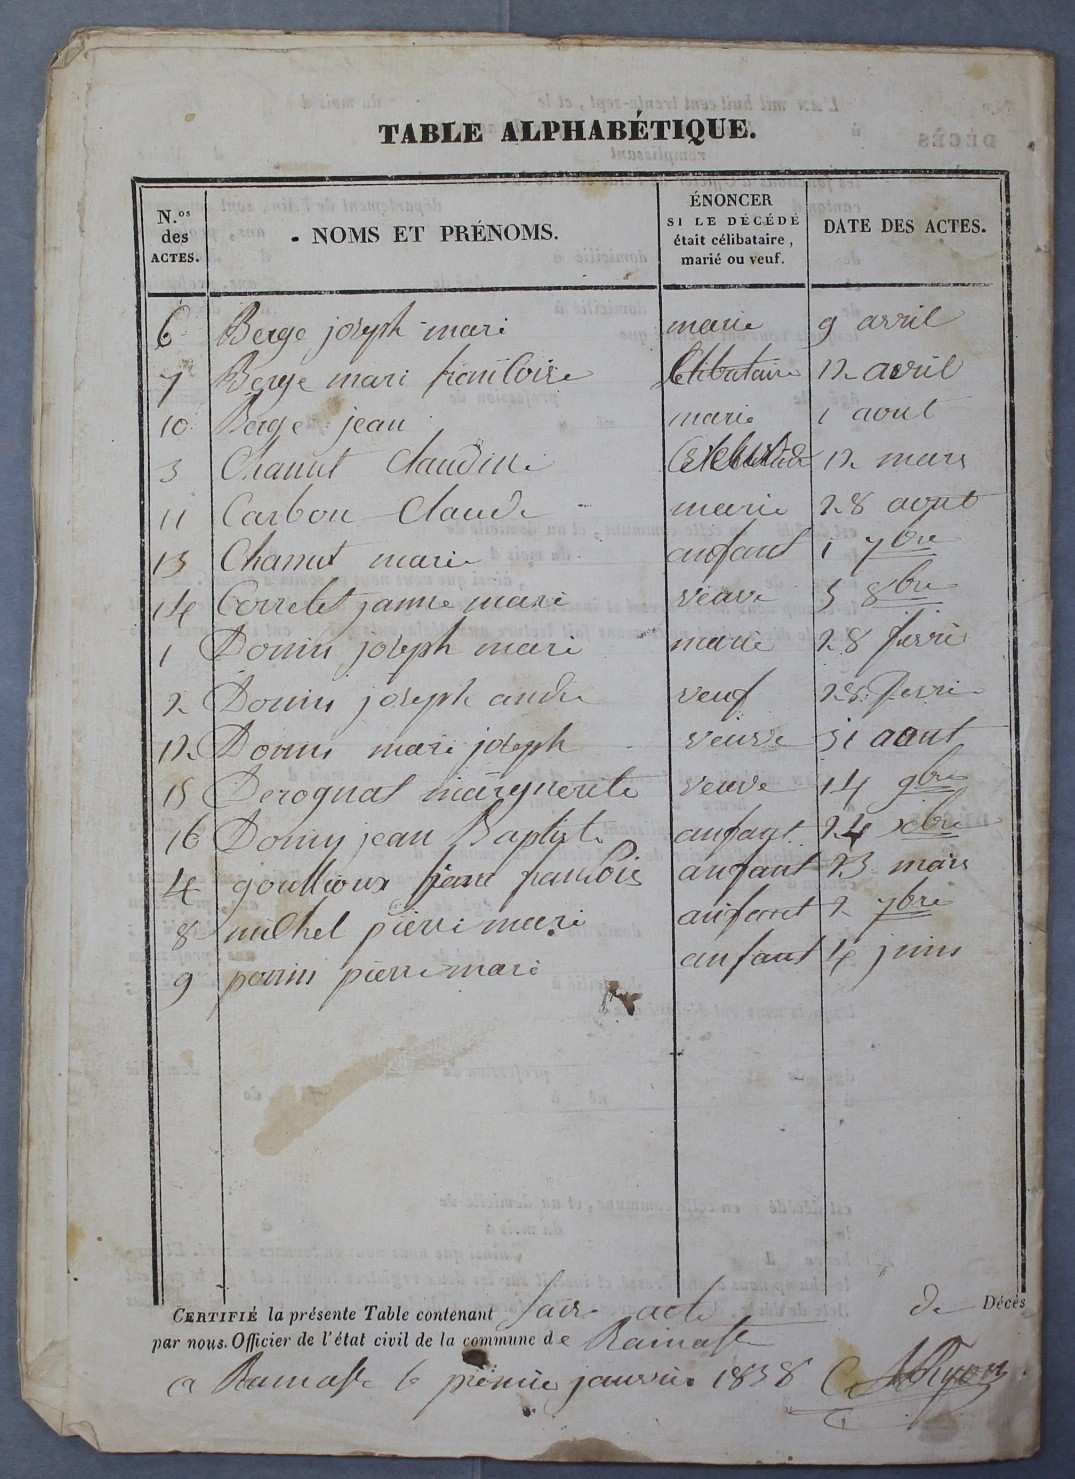 TABLE ALPHABÉTIQUE.
N.os des ACTES.
NOMS ET PRÉNOMS.
ÉNONCER SI LE DÉCÉDÉ était célibataire, marié ou veuf.
DATE DES ACTES.
6 Berge joseph mari marie 9 avril
7 Berge mari francoise Celibataire 12 avril
10 Berge jean marie 1 aout
3 Chanut Claudine 12 mars
11 Carbon Claude marie 28 aout
13 Chanut marie anfant 1 7bre
14 Correlet janne marie veuve 5 8bre
1 Donin joseph mari marie 28 fevrie
2 Donin joseph andre veuf 28 fevrie
12 Donin mari joseph veuve 31 aout
15 Derognat marguerite veuve 14 9bre
16 Donin jean Baptiste anfant 24 xbre
4 goullioux francois anfant 23 mars
8 michel pierre mari anfant 2 7bre
9 perrin pierre mari anfant 4 juin
CERTIFIÉ la présente Table contenant acte de Décès
par nous Officier de l'état civil de la commune de Ramasse
a Ramasse le premie janvrie 1838